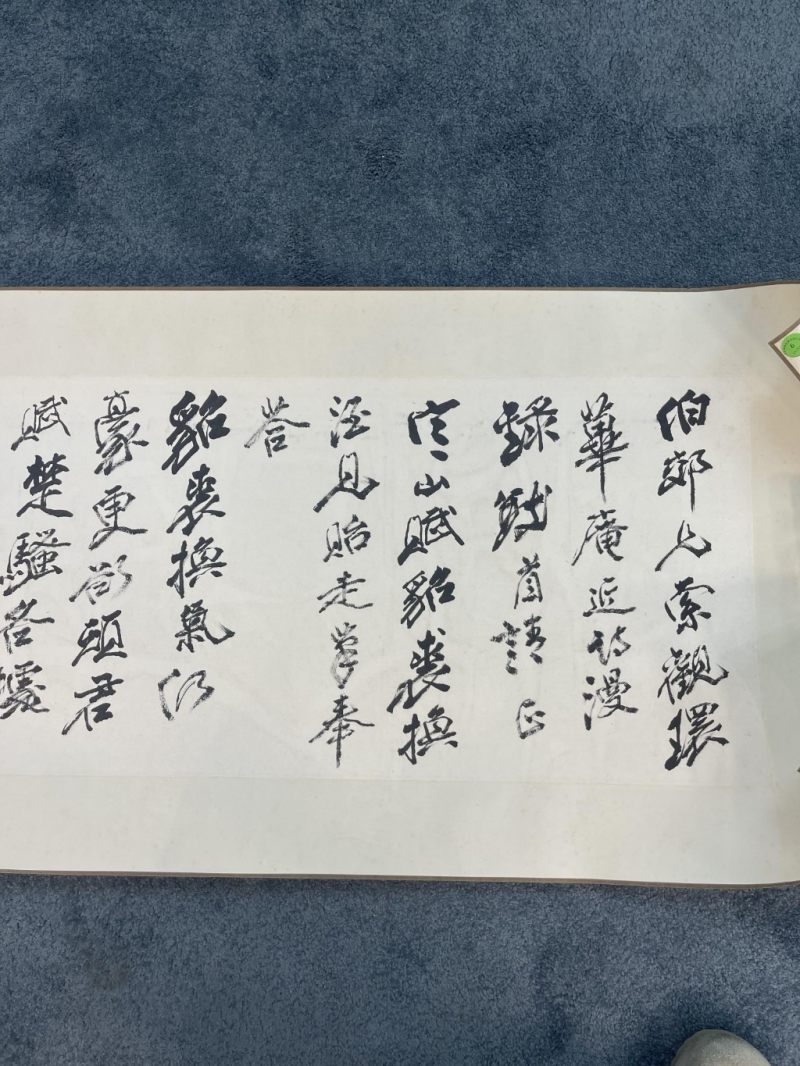 伯兄索觀環
蓽庵近詩漫
錄數首請正
寒山賦貂裘換
酒見貽走筆奉
答
貂裘換氣仍
豪更欲君
賦楚騷各據